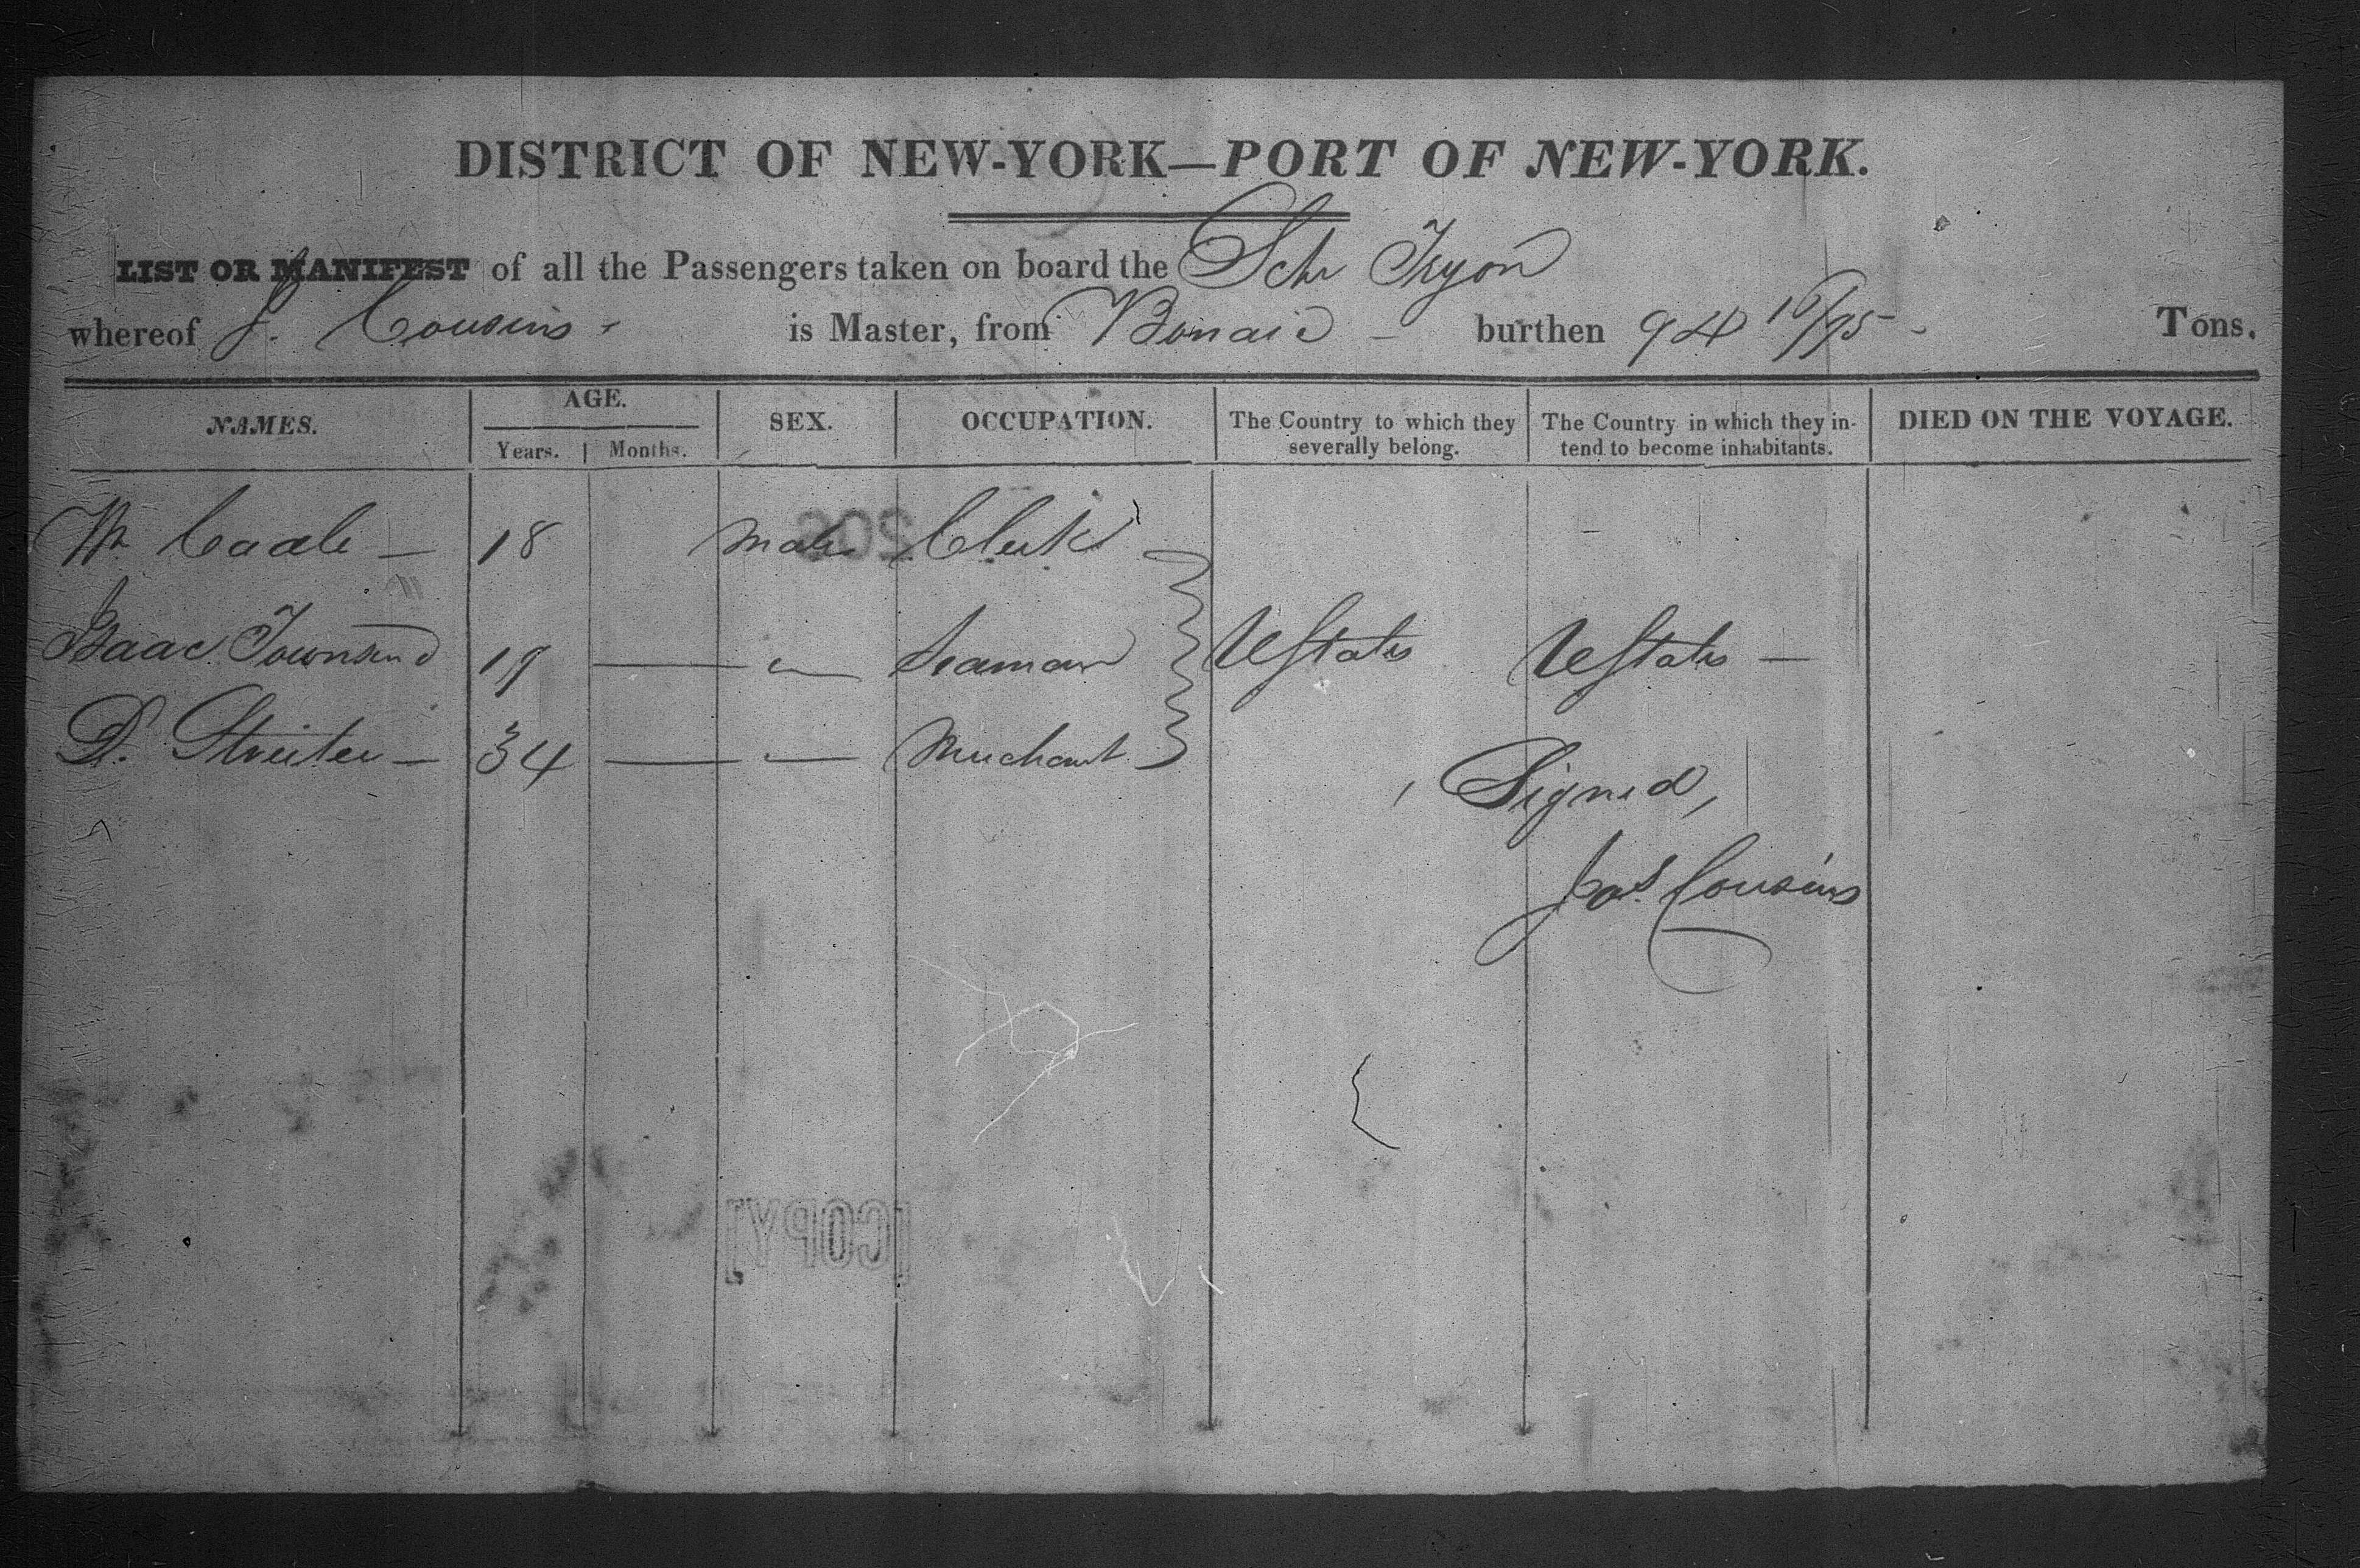 DISTRICT OF NEW-YORK—PORT OF NEW-YORK.
LIST OR MANIFEST of all the Passengers taken on board the Schr Tryon
whereof J. Cousins is Master, from Bonair burthen 94 10/95 Tons.
NAMES. AGE. SEX. OCCUPATION. The Country to which they severally belong. The Country in which they intend to become inhabitants. DIED ON THE VOYAGE.
Years. Months.
Wm 18 male Clerk
Isaac Townsend 19 — " — Seaman UStates UStates —
D. Streeter — 34 — — Merchant
Signed,
Jos. Cousins
[COPY]